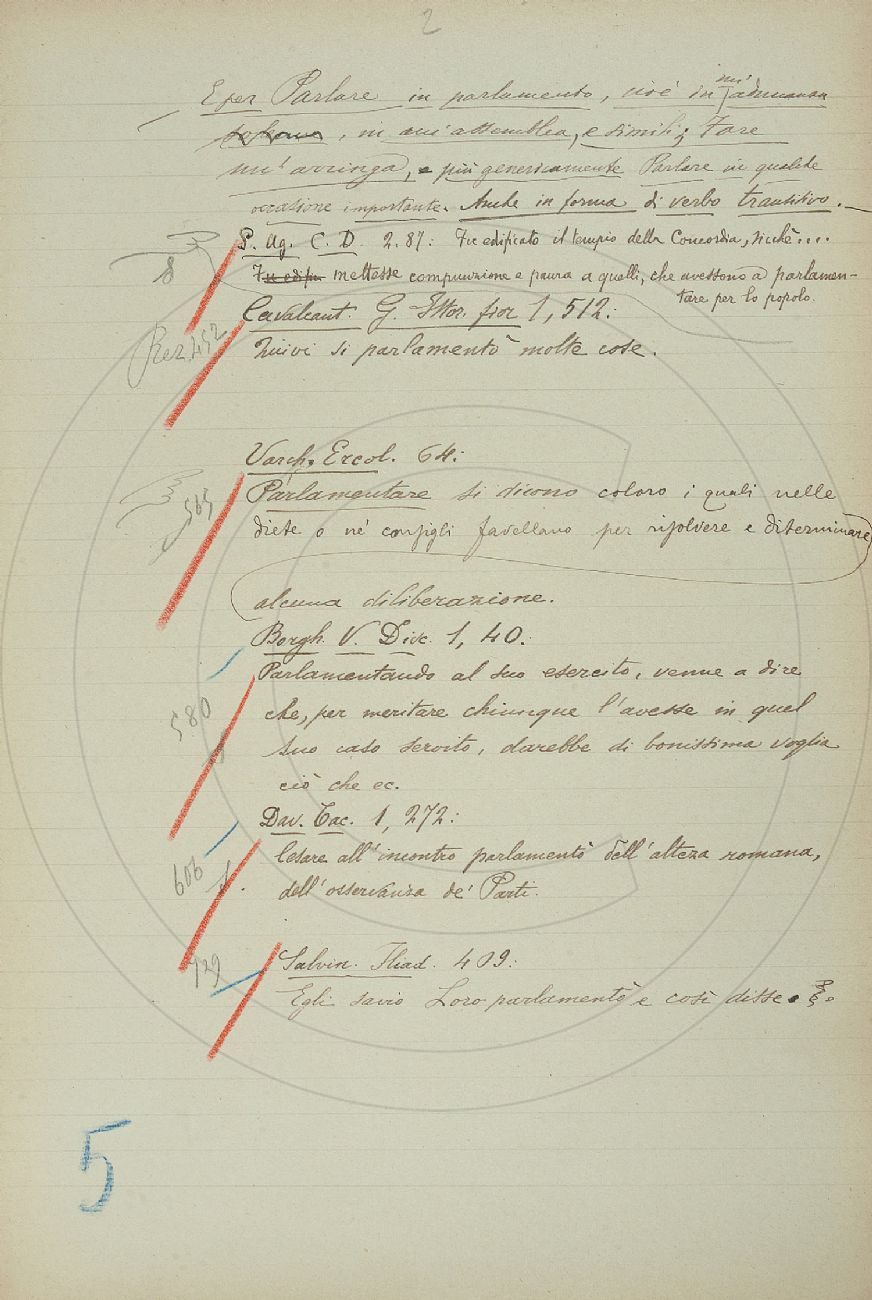 2
E per Parlare in parlamento, cioè in un' adunanza
, in un' assemblea, e simili; Fare
un' arringa, e più genericamente Parlare in qualche
occasione importante. Anche in forma di verbo transitivo.
S. Ag. C. D. 2. 87: Fu edificato il tempio della Concordia, sicchè...
8
Fu edifi mettesse compunzione e paura a quelli, che avessono a parlamen-
tare per lo popolo.
Cavalcant. G. Stor. fior. 1, 512:
452
Quivi si parlamentò molte cose.
Varch. Ercol. 64:
Parlamentare si dicono coloro i quali nelle
565
diete o ne' consigli favellano per risolvere e diterminare
alcuna diliberazione.
Borgh. V. Disc. 1, 40:
Parlamentando al suo esercito, venne a dire
580
che, per meritare chiunque l'avesse in quel
suo caso servito, darebbe di bonissima voglia
ciò che ec.
Dav. Tac. 1, 272:
606
Cesare all'incontro parlamentò dell'alteza romana,
dell'osservanza de' Parti.
729
Salvin. Iliad. 409:
Egli savio Loro parlamentò e così disse.
5